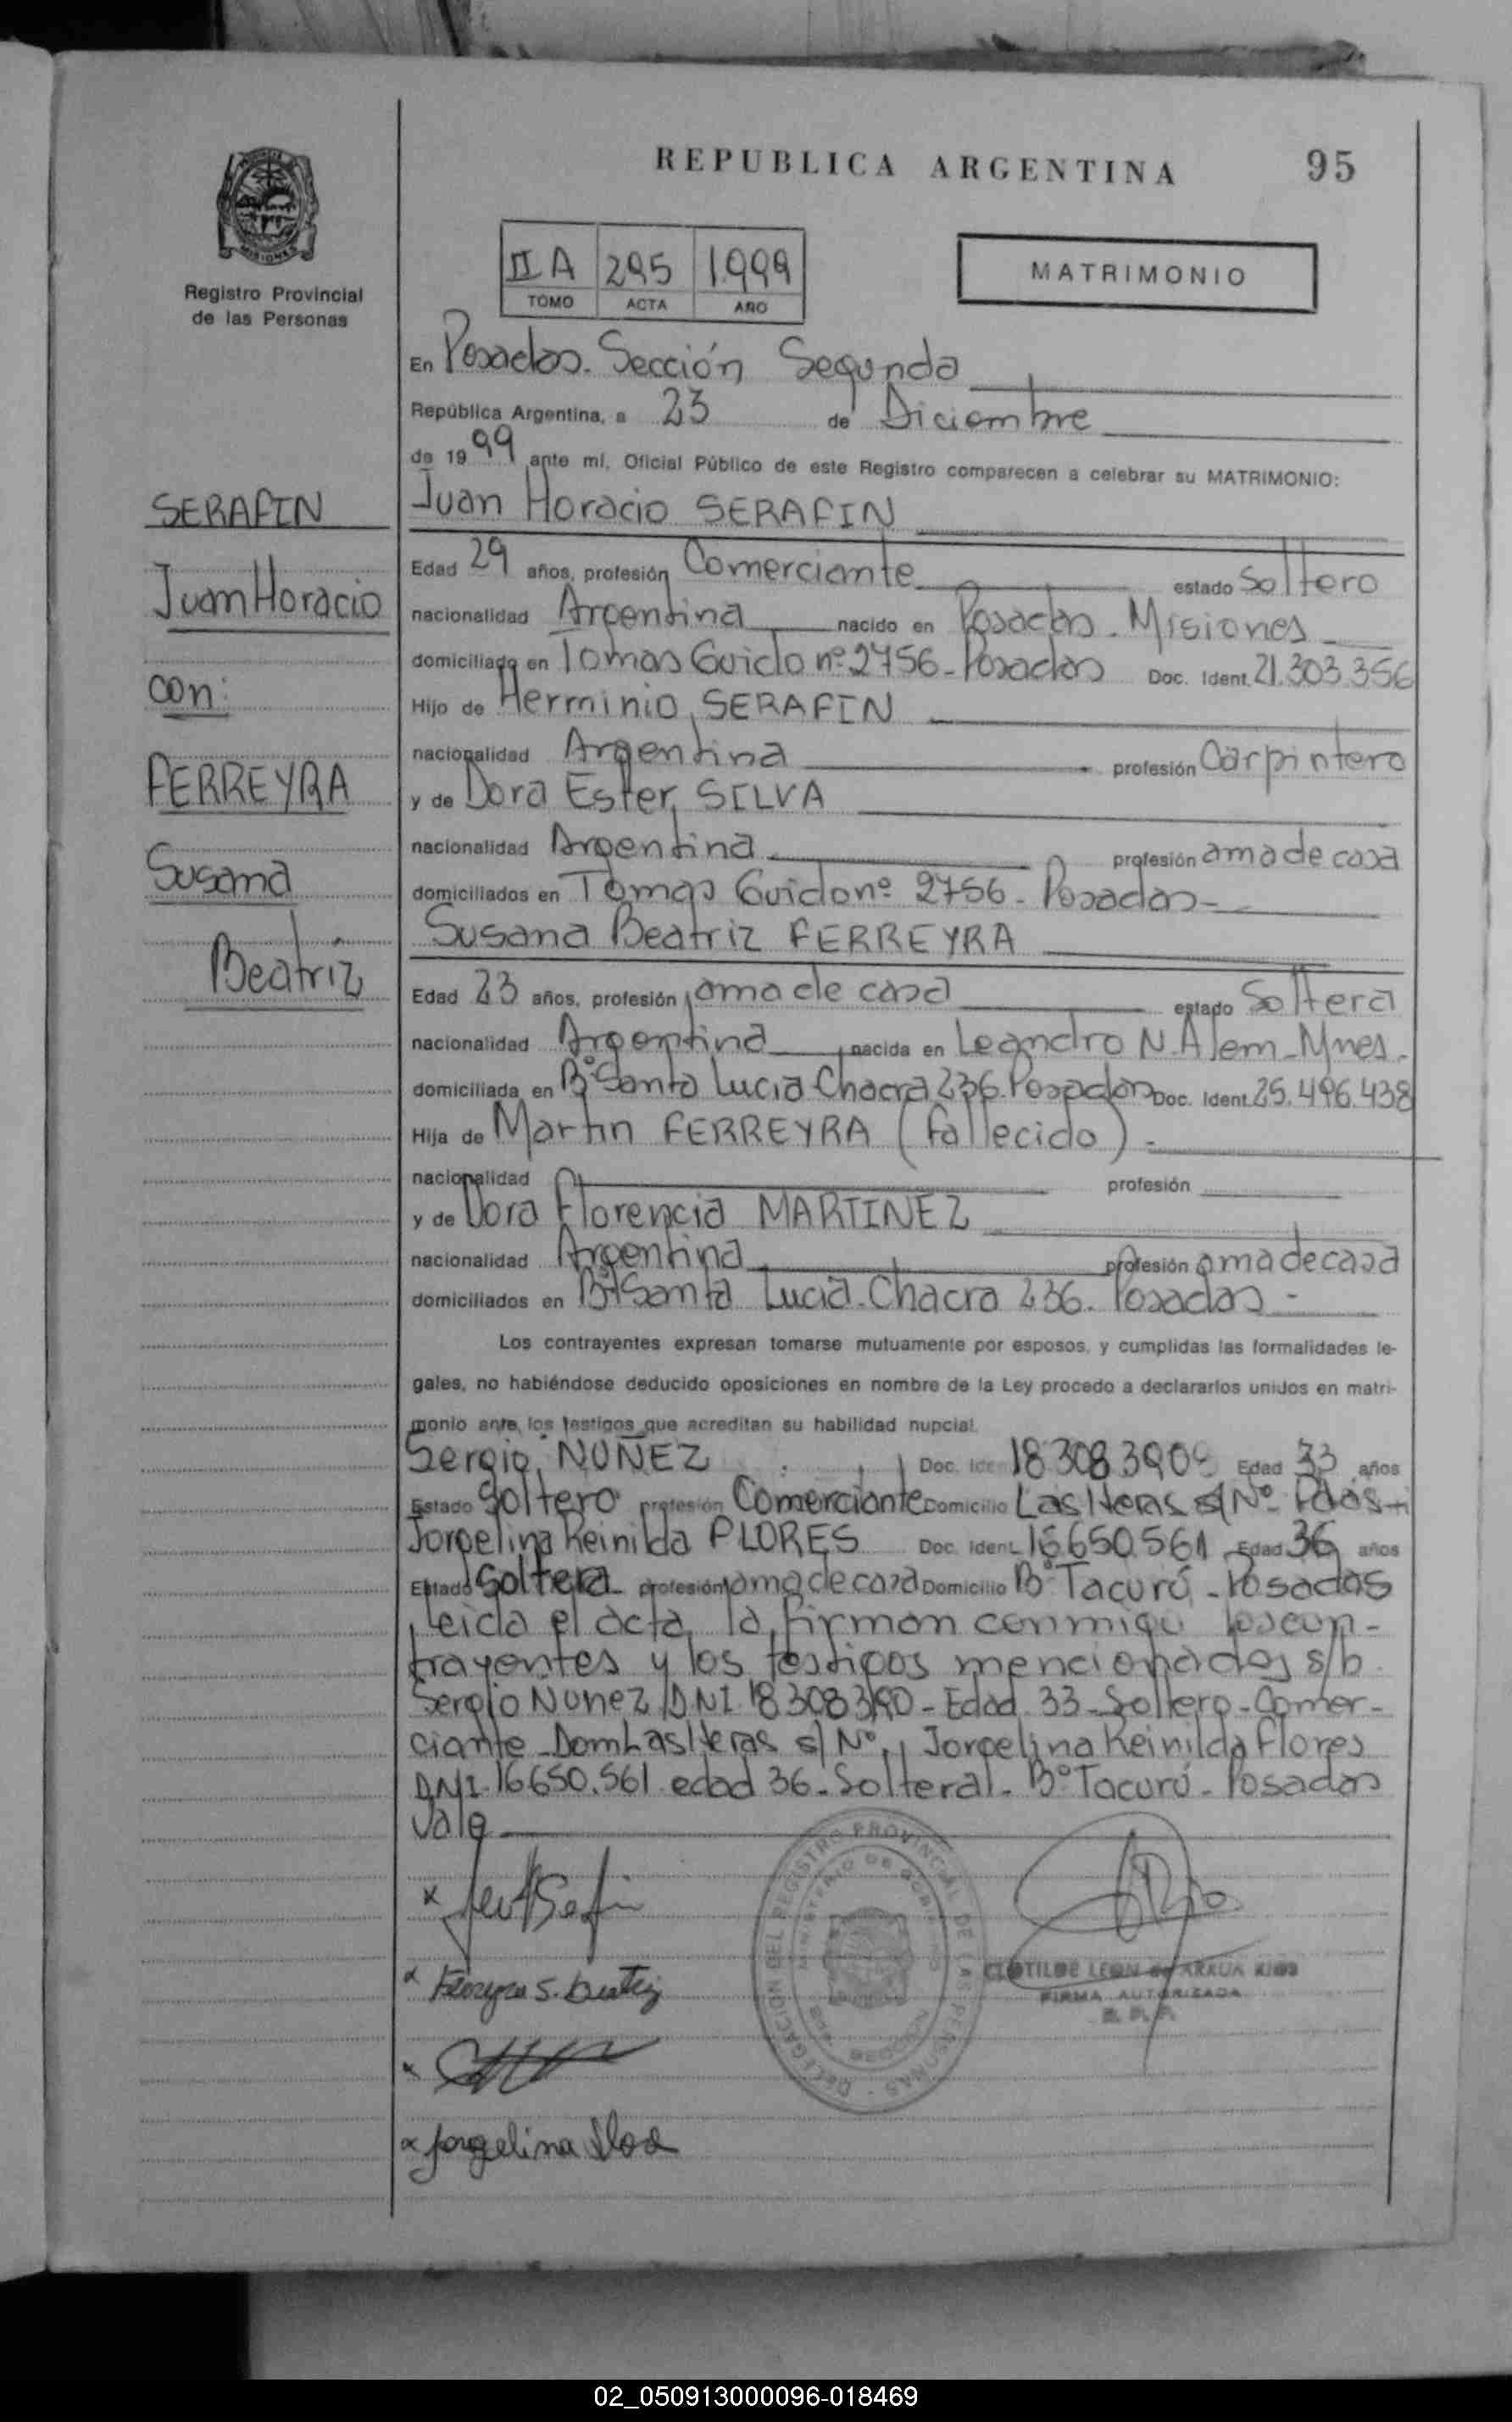 REPUBLICA ARGENTINA
95
MISIONES
Registro Provincial
de las Personas
II A 295 1999
TOMO ACTA AÑO
MATRIMONIO
En Posadas. Sección Segunda
República Argentina, a 23 de Diciembre
de 1999 ante mí, Oficial Público de este Registro comparecen a celebrar su MATRIMONIO:
SERAFIN
Juan Horacio
con:
FERREYRA
Susana
Beatriz
Juan Horacio SERAFIN
Edad 29 años, profesión Comerciante estado Soltero
nacionalidad Argentina nacido en Posadas. Misiones
domiciliado en Tomas Guido nº 2756 - Posadas Doc. Ident. 21.303.356
Hijo de Herminio SERAFIN
nacionalidad Argentina profesión Carpintero
y de Dora Ester SILVA
nacionalidad Argentina profesión ama de casa
domiciliados en Tomas Guido nº 2756 - Posadas -
Susana Beatriz FERREYRA
Edad 23 años, profesión ama de casa estado Soltera
nacionalidad Argentina nacida en Leandro N. Alem - Mnes.
domiciliada en Bº Santa Lucia Chacra 236. Posadas Doc. Ident. 25.496.438
Hija de Martin FERREYRA (fallecido) -
nacionalidad profesión
y de Dora Florencia MARTINEZ
nacionalidad Argentina profesión ama de casa
domiciliados en Bº Santa Lucia. Chacra 236. Posadas -
Los contrayentes expresan tomarse mutuamente por esposos, y cumplidas las formalidades le-
gales, no habiéndose deducido oposiciones en nombre de la Ley procedo a declararlos unidos en matri-
monio ante los testigos que acreditan su habilidad nupcial.
Sergio NUÑEZ Doc. Iden Edad 33 años
Estado Soltero profesión Comerciante Domicilio Las Heras s/Nº Pdas
Jorgelina Reinilda FLORES Doc. Ident. 16650.561 Edad 36 años
Estado Soltera profesión ama de casa Domicilio Bº Tacurú - Posadas
Leida el acta, la firman conmigo los con-
trayentes y los testigos mencionados s/b.
Sergio Nuñez DNI. - Edad 33 - Soltero - Comer-
ciante - Dom Las Heras s/Nº, Jorgelina Reinilda Flores
DNI. 16650.561 edad 36 - Soltera - Bº Tacurú - Posadas
Vale
x
x Ferreyra S. Beatriz
x
x Jorgelina Flores
DELEGACION DEL REGISTRO PROVINCIAL DE LAS PERSONAS
MINISTERIO DE GOBIERNO
CLOTILDE LEON de ARAUA RIOS
FIRMA AUTORIZADA
R. P. P.
02_050913000096-018469